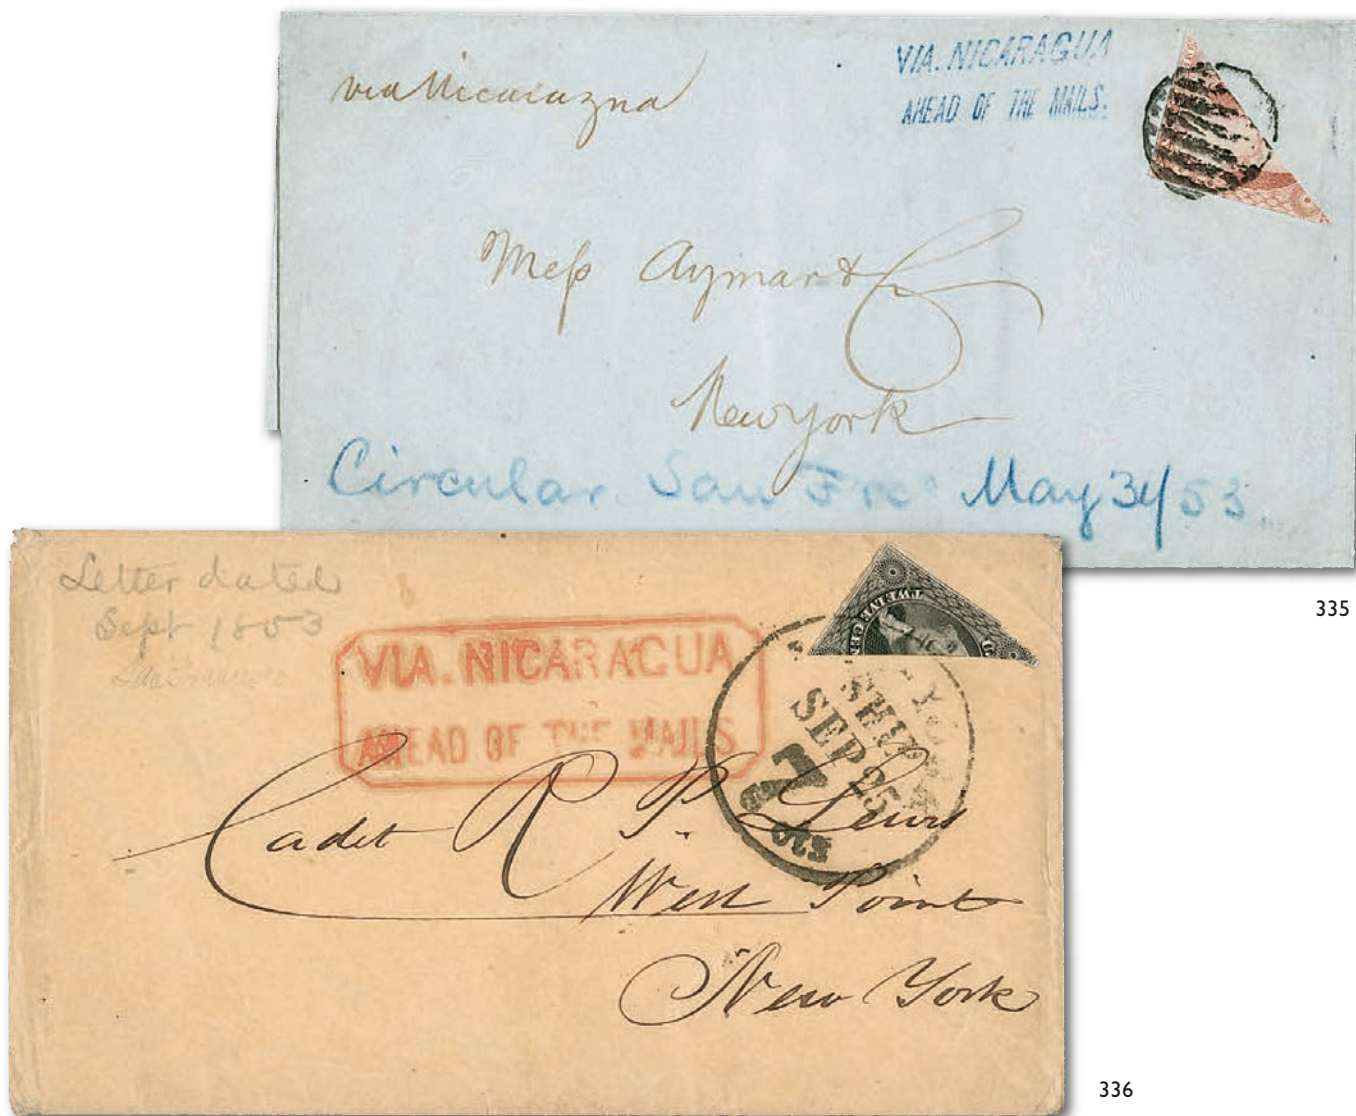 via Nicaragua
VIA. NICARAGUA
AHEAD OF THE MAILS.
Mess Aymar & Co
New York
Circular San Frco May 31/53
335
Letter dated
Sept 1853
San Francisco
VIA. NICARAGUA
AHEAD OF THE MAILS
TWELVE CEN
SHIP
SEP 25
7
cts
Cadet R. P. Lewis
West Point
New York
336